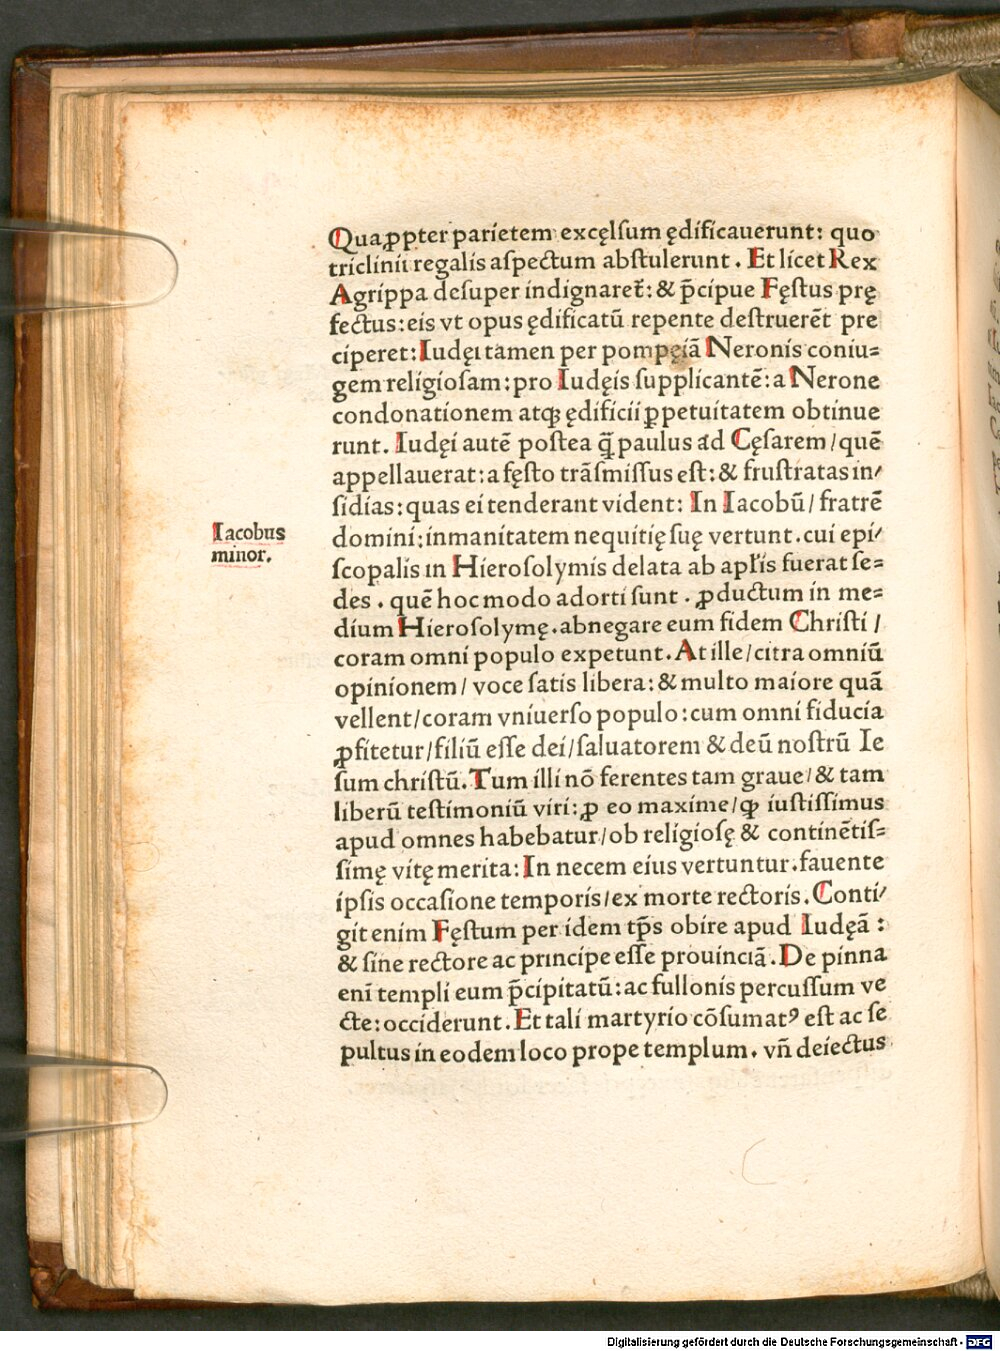 Quaꝓpter parietem excęlſum ędificauerunt: quo
triclinii regalis aſpectum abſtulerunt. Et licet Rex
Agrippa deſuper indignaret᷑: & p̄cipue Fęſtus prę
fectus: eis vt opus ędificatū repente deſtruerēt pre
ciperet: Iudęi tamen per pompęiā Neronis coniu⸗
gem religioſam: pro Iudęis ſupplicantē: a Nerone
condonationem atqꝫ ędificii ꝑpetuitatem obtinue
runt. Iudęi autē poſtea q̄ paulus ad Cęſarem/ quē
appellauerat: a fęſto trāſmiſſus eſt: & fruſtratas in/
ſidias: quas ei tenderant vident: In Iacobū/ fratrē
Iacobus
minor.
domini: inmanitatem nequitię ſuę vertunt. cui epi/
ſcopalis in Hieroſolymis delata ab apl̄is fuerat ſe⸗
des. quē hoc modo adorti ſunt. ꝓductum in me⸗
dium Hieroſolymę. abnegare eum fidem Chriſti/
coram omni populo expetunt. At ille/ citra omniū
opinionem/ voce ſatis libera: & multo maiore quā
vellent/ coram vniuerſo populo: cum omni fiducia
ꝓfitetur/ filiū eſſe dei/ ſaluatorem & deū noſtrū Ie
ſum chriſtū. Tum illi nō ferentes tam graue/ & tam
liberū teſtimoniū viri: ꝓ eo maxime/ ꝙ iuſtiſſimus
apud omnes habebatur/ ob religioſę & continētiſ⸗
ſimę vitę merita: In necem eius vertuntur. fauente
ipſis occaſione temporis/ ex morte rectoris. Conti/
git enim Fęſtum per idem tp̄s obire apud Iudęā:
& ſine rectore ac principe eſſe prouinciā. De pinna
enī templi eum p̄cipitatū: ac fullonis percuſſum ve
cte: occiderunt. Et tali martyrio cōſumatꝰ eſt ac ſe
pultus in eodem loco prope templum. vn̄ deiectus
Digitalisierung gefördert durch die Deutsche Forschungsgemeinschaft - DFG